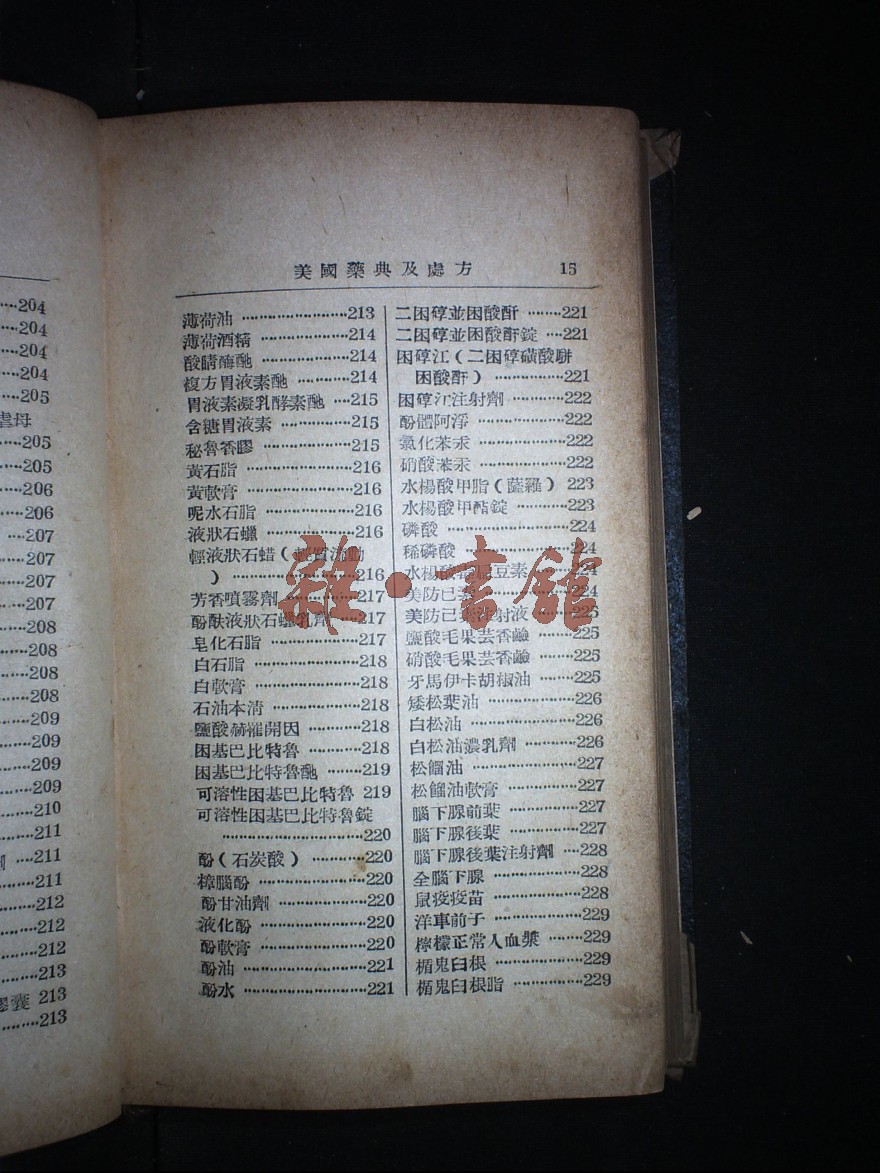 204
204
204
204
205
母
205
205
206
206
207
207
207
207
208
208
208
209
209
209
209
210
211
211
211
212
212
212
213
膠囊 213
213
美國藥典及處方 15
薄荷油 213
薄荷酒精 214
酸睛酶酏 214
複方胃液素酏 214
胃液素凝乳酵素酏 215
含糖胃液素 215
秘魯香膠 215
黃石脂 216
黃軟膏 216
呢水石脂 216
液狀石蠟 216
輕液狀石蜡(輕質流動
) 216
芳香噴霧劑 217
酚酞液狀石蠟乳劑 217
皂化石脂 217
白石脂 218
白軟膏 218
石油本清 218
鹽酸赫罹開因 218
困基巴比特魯 218
困基巴比特魯酏 219
可溶性困基巴比特魯 219
可溶性困基巴比特魯錠
220
酚(石炭酸) 220
樟腦酚 220
酚甘油劑 220
液化酚 220
酚軟膏 220
酚油 221
酚水 221
二困醇並困酸酐 221
二困醇並困酸酐錠 221
困醇江(二困醇磺酸駢
困酸酐) 221
困醇江注射劑 222
酚體阿淨 222
氯化苯汞 222
硝酸苯汞 222
水楊酸甲脂(薩羅) 223
水楊酸甲酯錠 223
磷酸 224
稀磷酸 224
水楊酸扁豆素 224
美防已素
美防已素注射液 225
鹽酸毛果芸香鹼 225
硝酸毛果芸香鹼 225
牙馬伊卡胡椒油 225
矮松葉油 226
白松油 226
白松油濃乳劑 226
松餾油 227
松餾油軟膏 227
腦下腺前葉 227
腦下腺後葉 227
腦下腺後葉注射劑 228
全腦下腺 228
鼠疫疫苗 228
洋車前子 229
檸檬正常人血漿 229
楯鬼臼根 229
楯鬼臼根脂 229
雜·書館